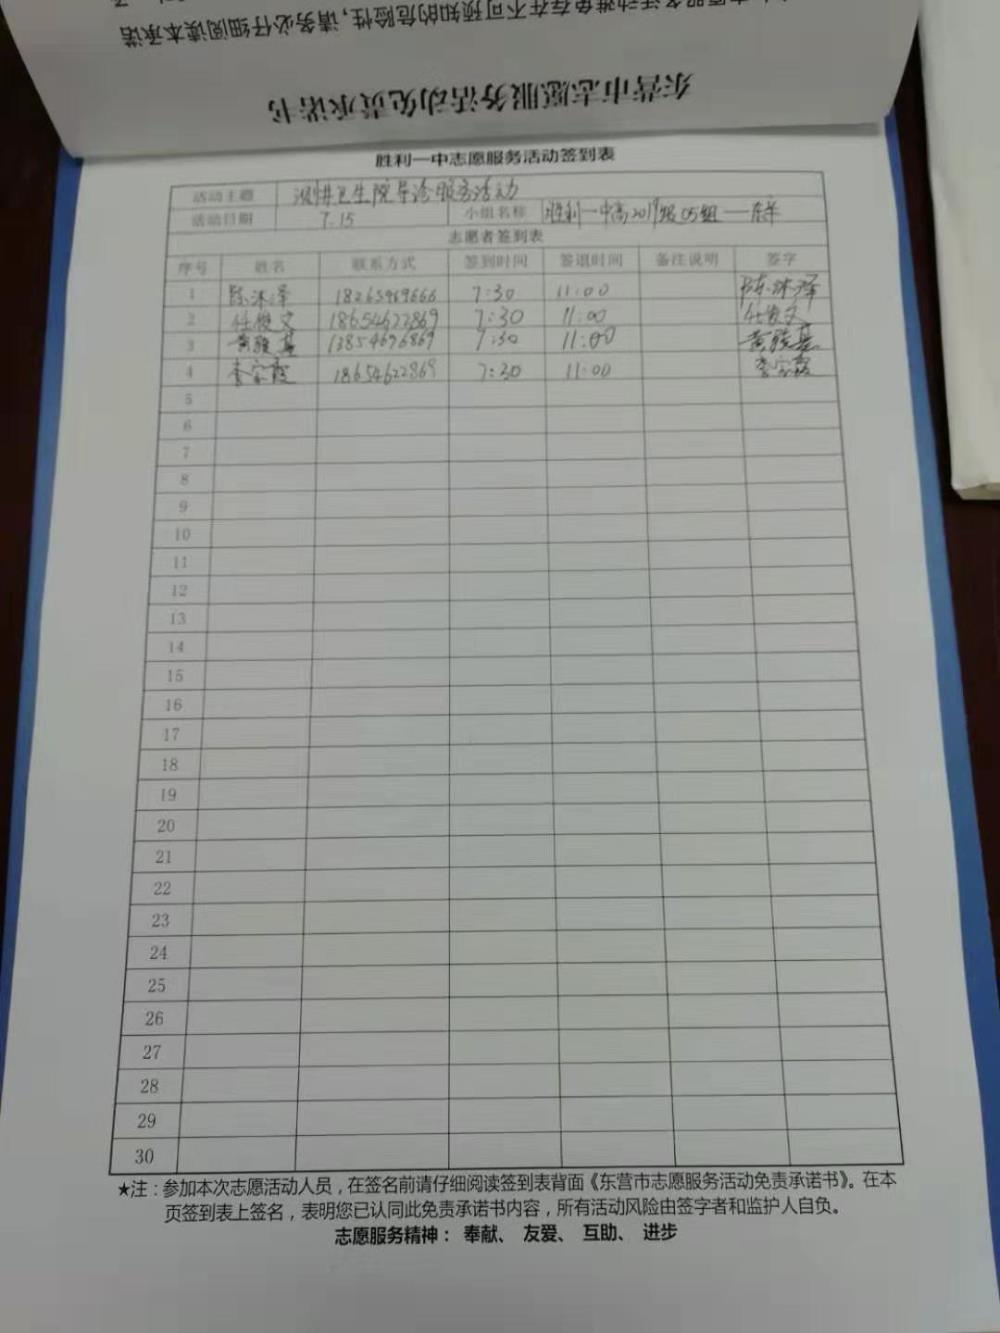 志愿服务活动难免存在不可预知的危险性，请务必仔细阅读本承诺
东营市志愿服务活动免责承诺书
胜利一中志愿服务活动签到表
活动主题 卫生院导诊服务活动
活动日期 7.15 小组名称 胜利一中高2019级05组一
志愿者签到表
序号 姓名 联系方式 签到时间 签退时间 备注说明 签字
1 陈沐泽 18265969666 7:30 11:00 陈沐泽
2 任俊文 18654622869 7:30 11:00 任俊文
3 黄骏基 13854696869 7:30 11:00 黄骏基
4 李家霞 18654622869 7:30 11:00 李家霞
5
6
7
8
9
10
11
12
13
14
15
16
17
18
19
20
21
22
23
24
25
26
27
28
29
30
★注：参加本次志愿活动人员，在签名前请仔细阅读签到表背面《东营市志愿服务活动免责承诺书》。在本
页签到表上签名，表明您已认同此免责承诺书内容，所有活动风险由签字者和监护人自负。
志愿服务精神： 奉献、 友爱、 互助、 进步